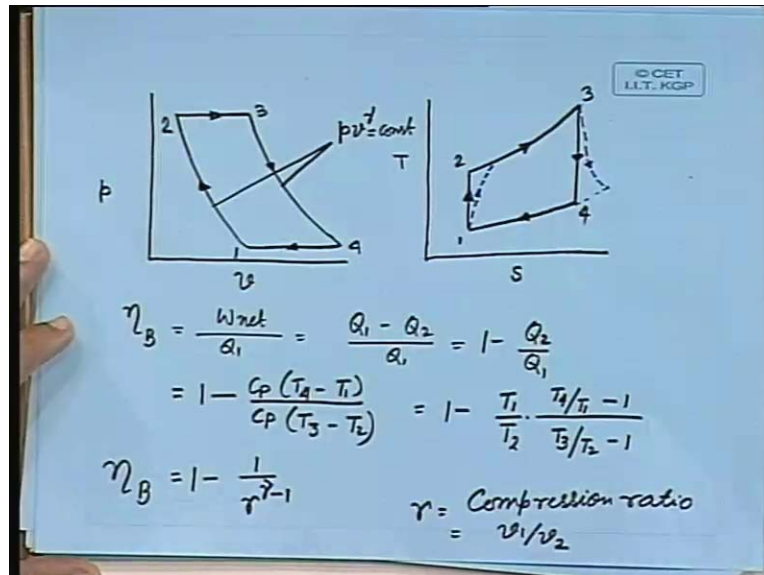 © CET
I.I.T. KGP
2 3 pvᵞ=const
p
1 4
v
T
3
2
4
1
S
η_B = Wnet/Q₁ = (Q₁ - Q₂)/Q₁ = 1 - Q₂/Q₁
= 1 - Cp (T₄ - T₁)/Cp (T₃ - T₂) = 1 - T₁/T₂ · (T₄/T₁ - 1)/(T₃/T₂ - 1)
η_B = 1 - 1/r^(γ-1)
r = Compression ratio
= v₁/v₂